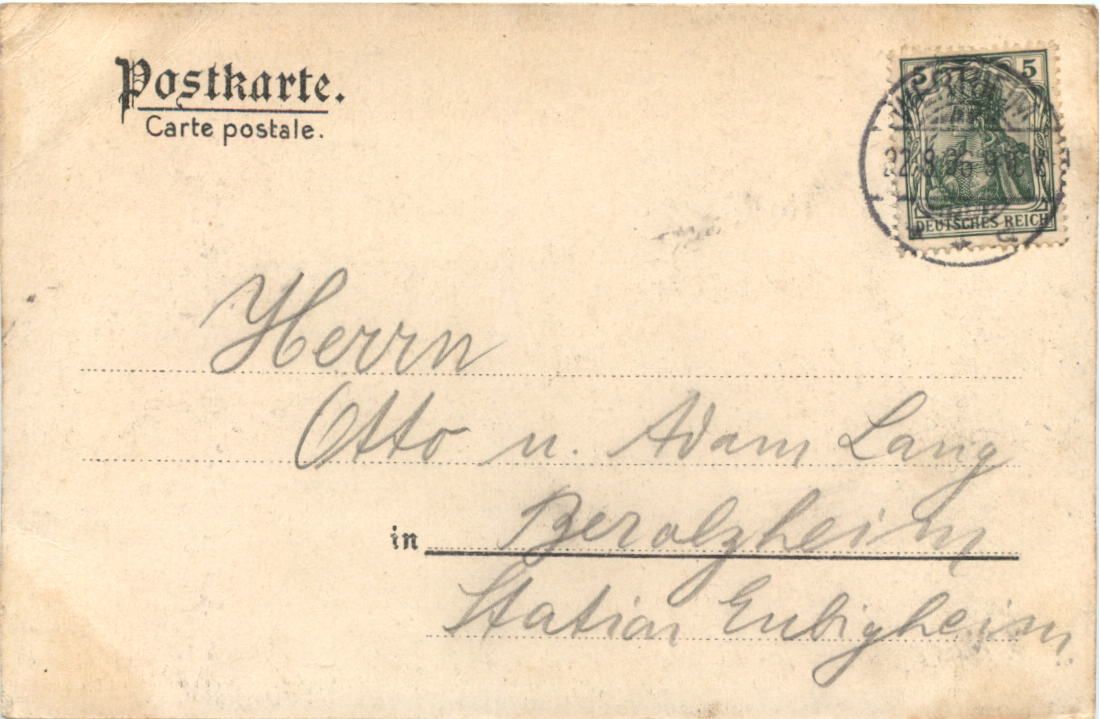 Postkarte.
Carte postale.
5 5
DEUTSCHES REICH
Herrn
Otto u. Adam Lang
in Berolzheim
Station Eubigheim